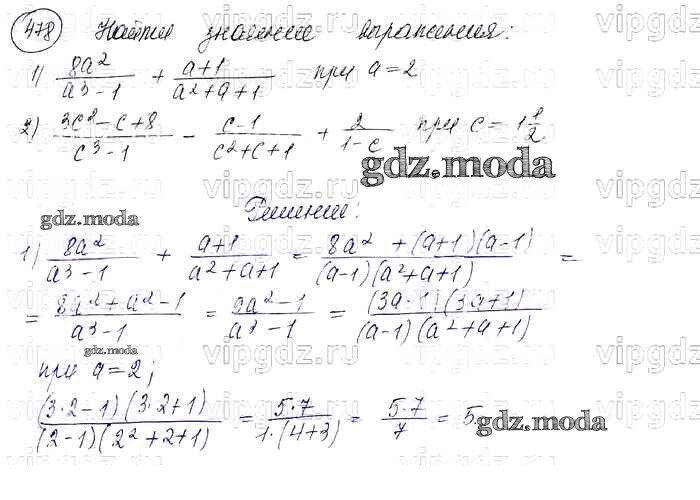 478 Найти значение выражения:
1) 8a²/(a³-1) + (a+1)/(a²+a+1) при a=2
2) (3c²-c+8)/(c³-1) - (c-1)/(c²+c+1) + 2/(1-c) при c=1 1/2
gdz.moda
Решение:
gdz.moda
1) 8a²/(a³-1) + (a+1)/(a²+a+1) = (8a²+(a+1)(a-1))/((a-1)(a²+a+1)) =
= (8a²+a²-1)/(a³-1) = (9a²-1)/(a³-1) = (3a-1)(3a+1)/((a-1)(a²+a+1))
gdz.moda
при a=2;
(3·2-1)(3·2+1)/((2-1)(2²+2+1)) = 5·7/(1·(4+3)) = 5·7/7 = 5.
gdz.moda
vipgdz.ru